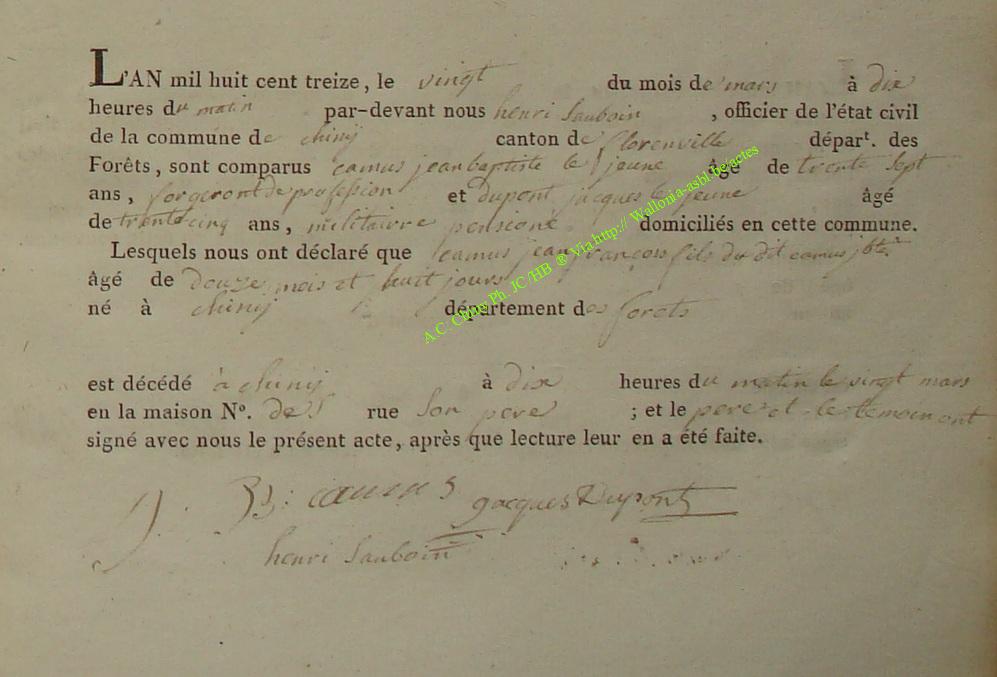 L'AN mil huit cent treize, le vingt du mois de mars à dix
heures du matin par-devant nous henri Sauboin, officier de l'état civil
de la commune de chinij canton de florenville départ. des
Forêts, sont comparus camus jean baptiste le jeune âgé de trente sept
ans, forgeront de profession et dupont jacques le jeune âgé
de trente cinq ans, militairre pensioné domiciliés en cette commune.
Lesquels nous ont déclaré que camus jean françois fils du dit camus jbte
âgé de douze mois et huit jours
né à chinij département des forets
est décédé à chinij à dix heures du matin le vingt mars
en la maison No. de s rue son pere ; et le pere et le temoin ont
signé avec nous le présent acte, après que lecture leur en a été faite.
camus jacques Dupont
henri Sauboin
A.C. Chiny Ph. JC/HB ® Via http:// Wallonia-asbl.be/actes